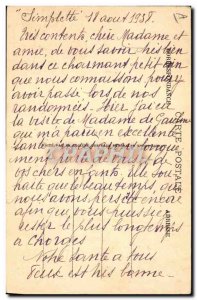 "Simplette" 18 aout 1938.
Tres contente, chère Madame et
amie, de vous savoir très bien
dans ce charmant petit coin
que nous connaissons pour y
avoir passé lors de nos
randonnées. Hier j'ai eu
la visite de Madame de
qui m'a paru en excellente
santé
de vos chers enfants, elle sou
haite que le beau temps, qui
nous avons persiste encore
afin que vous puissiez
rester le plus longtemps
à Chorges
Notre santé à tous
deux est très bonne.
CARTE POSTALE
ADRESSE